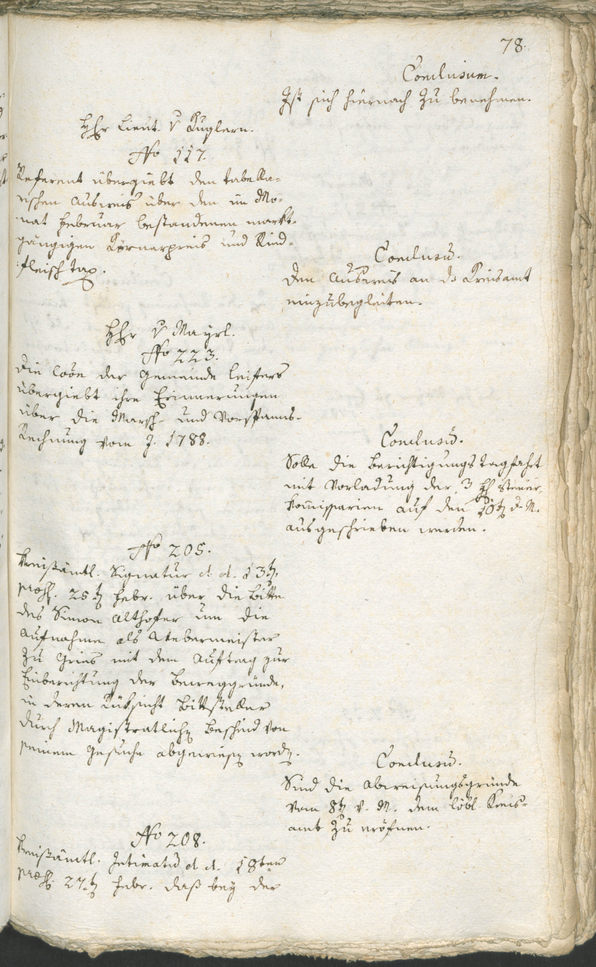 78.
Conclusum.
Ist sich hiernach zu benehmen.
Hhr Lieut. v Kuglern.
No 117.
Referent übergiebt den tabella-
rischen Ausweis über den im Mo-
nat Februar bestandenen markt-
gängigen Körnerpreis und Rind-
fleisch tax.
Conclusū.
Den Ausweis an ds Kreisamt
einzubegleiten.
Hhr v Mayrl.
No 223.
Die Löbe der Gemeinde Leifers
übergiebt ihre Erinnerungen
über die Marsch- und Vorspanns-
Rechnung vom J. 1788.
Conclusū.
Solle die Berichtigungs tagfahrt
mit Vorladung der 3 Hh Steuer-
kom̄issarien auf den 10t d. M.
ausgeschrieben werden.
No 205.
Kreisämtl. Signatur d. d. 13t,
præs. 25t Febr. über die Bitte
des Simon Althofer um die
Aufnahme als Webermeister
zu Gries mit dem Auftrag zur
Einberichtung der Beweggründe,
in deren Rüksicht Bittsteller
durch Magistratlichen Bescheid von
seinem Gesuche abgewiesen worden.
Conclusū.
Sind die Abweisungsgründe
vom 8t v. M. dem löbl. Kreis-
amt zu eröfnen.
No 208.
Kreisämtl. Intimatū d. d. 18ten
præs. 27t Febr. daß bey der